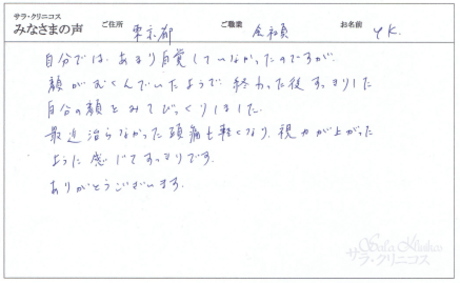 サラ・クリニコス
みなさまの声 ご住所 東京都 ご職業 会社員 お名前 Y K.
自分では、あまり自覚していなかったのですが、
顔がむくんでいたようで、終わった後すっきりした
自分の顔をみてびっくりしました。
最近治らなかった頭痛も軽くなり、視力が上がった
ように感じてすっきりです。
ありがとうございます。
Sala Klinikos
サラ・クリニコス